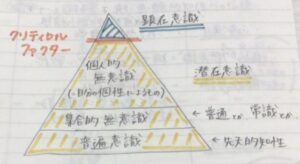 顕在意識
クリティカル
ファクター
個人的
無意識
(自分の個性によるもの)
潜在意識
集合的無意識
← 普通とか常識とか
普遍意識
← 先天的知性